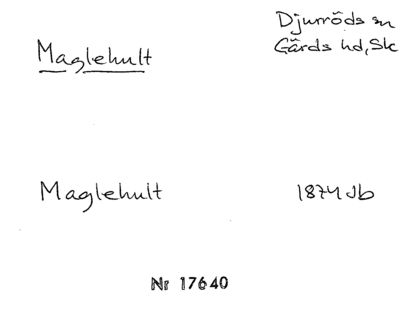 Maglehult
Djurröds sn
Gärds hd, Sk
Maglehult
1874 Jb
Nr 17640